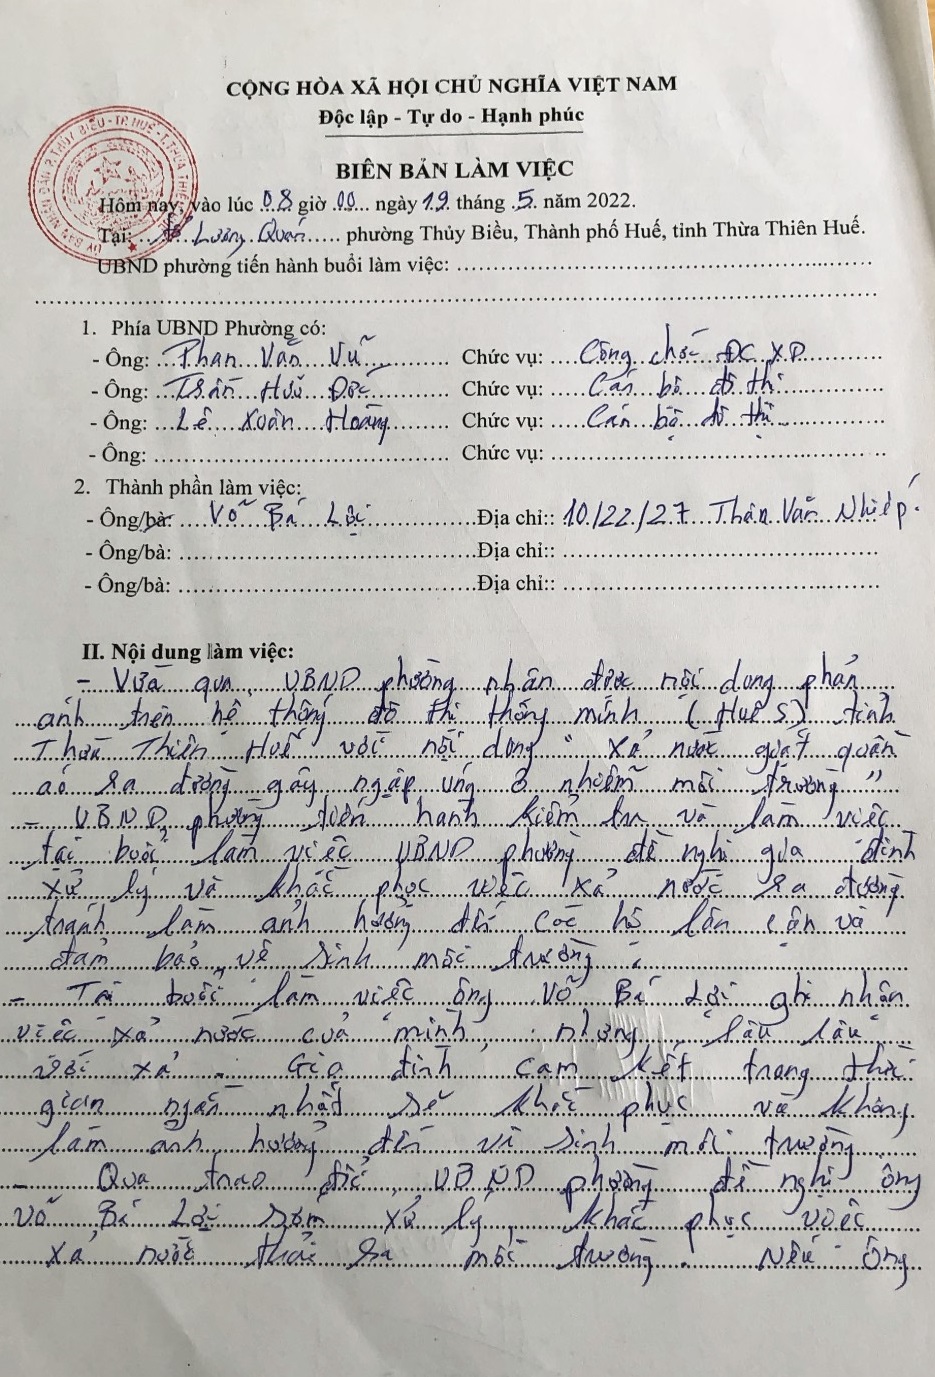 CỘNG HÒA XÃ HỘI CHỦ NGHĨA VIỆT NAM
Độc lập - Tự do - Hạnh phúc
BIÊN BẢN LÀM VIỆC
Hôm nay, vào lúc 08 giờ 00 ngày 19 tháng 5 năm 2022.
Tại: Lương Quán phường Thủy Biều, Thành phố Huế, tỉnh Thừa Thiên Huế.
UBND phường tiến hành buổi làm việc:
1. Phía UBND Phường có:
- Ông: Phan Văn Vũ Chức vụ: Công chức ĐC XD
- Ông: Trần Hữu Đức Chức vụ: Cán bộ đô thị
- Ông: Lê Xuân Hoàng Chức vụ: Cán bộ đô thị
- Ông: Chức vụ:
2. Thành phần làm việc:
- Ông/bà: Võ Bá Lợi Địa chỉ:: 10/22/27 Thân Văn Nhiếp.
- Ông/bà: Địa chỉ::
- Ông/bà: Địa chỉ::
II. Nội dung làm việc:
- Vừa qua, UBND phường nhận được nội dung phản
ánh trên hệ thống đô thị thông minh (Huế S) tỉnh
Thừa Thiên Huế với nội dung " Xả nước giặt quần
áo ra đường gây ngập úng ô nhiễm môi trường "
- UBND phường tiến hành kiểm tra và làm việc
tại buổi làm việc UBND phường đề nghị gia đình
xử lý và khắc phục việc xả nước ra đường
tránh làm ảnh hưởng đến các hộ lân cận và
đảm bảo vệ sinh môi trường.
- Tại buổi làm việc ông Võ Bá Lợi ghi nhận
việc xả nước của mình, nhưng lâu lâu
với xả. Gia đình cam kết trong thời
gian ngắn nhất sẽ khắc phục và không
làm ảnh hưởng đến vệ sinh môi trường
- Qua trao đổi, UBND phường đề nghị ông
Võ Bá Lợi sớm xử lý, khắc phục việc
xả nước thải ra môi trường. Nếu ông